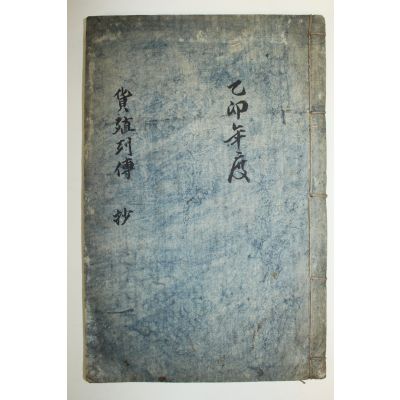 乙卯年度
貨殖列傳 抄